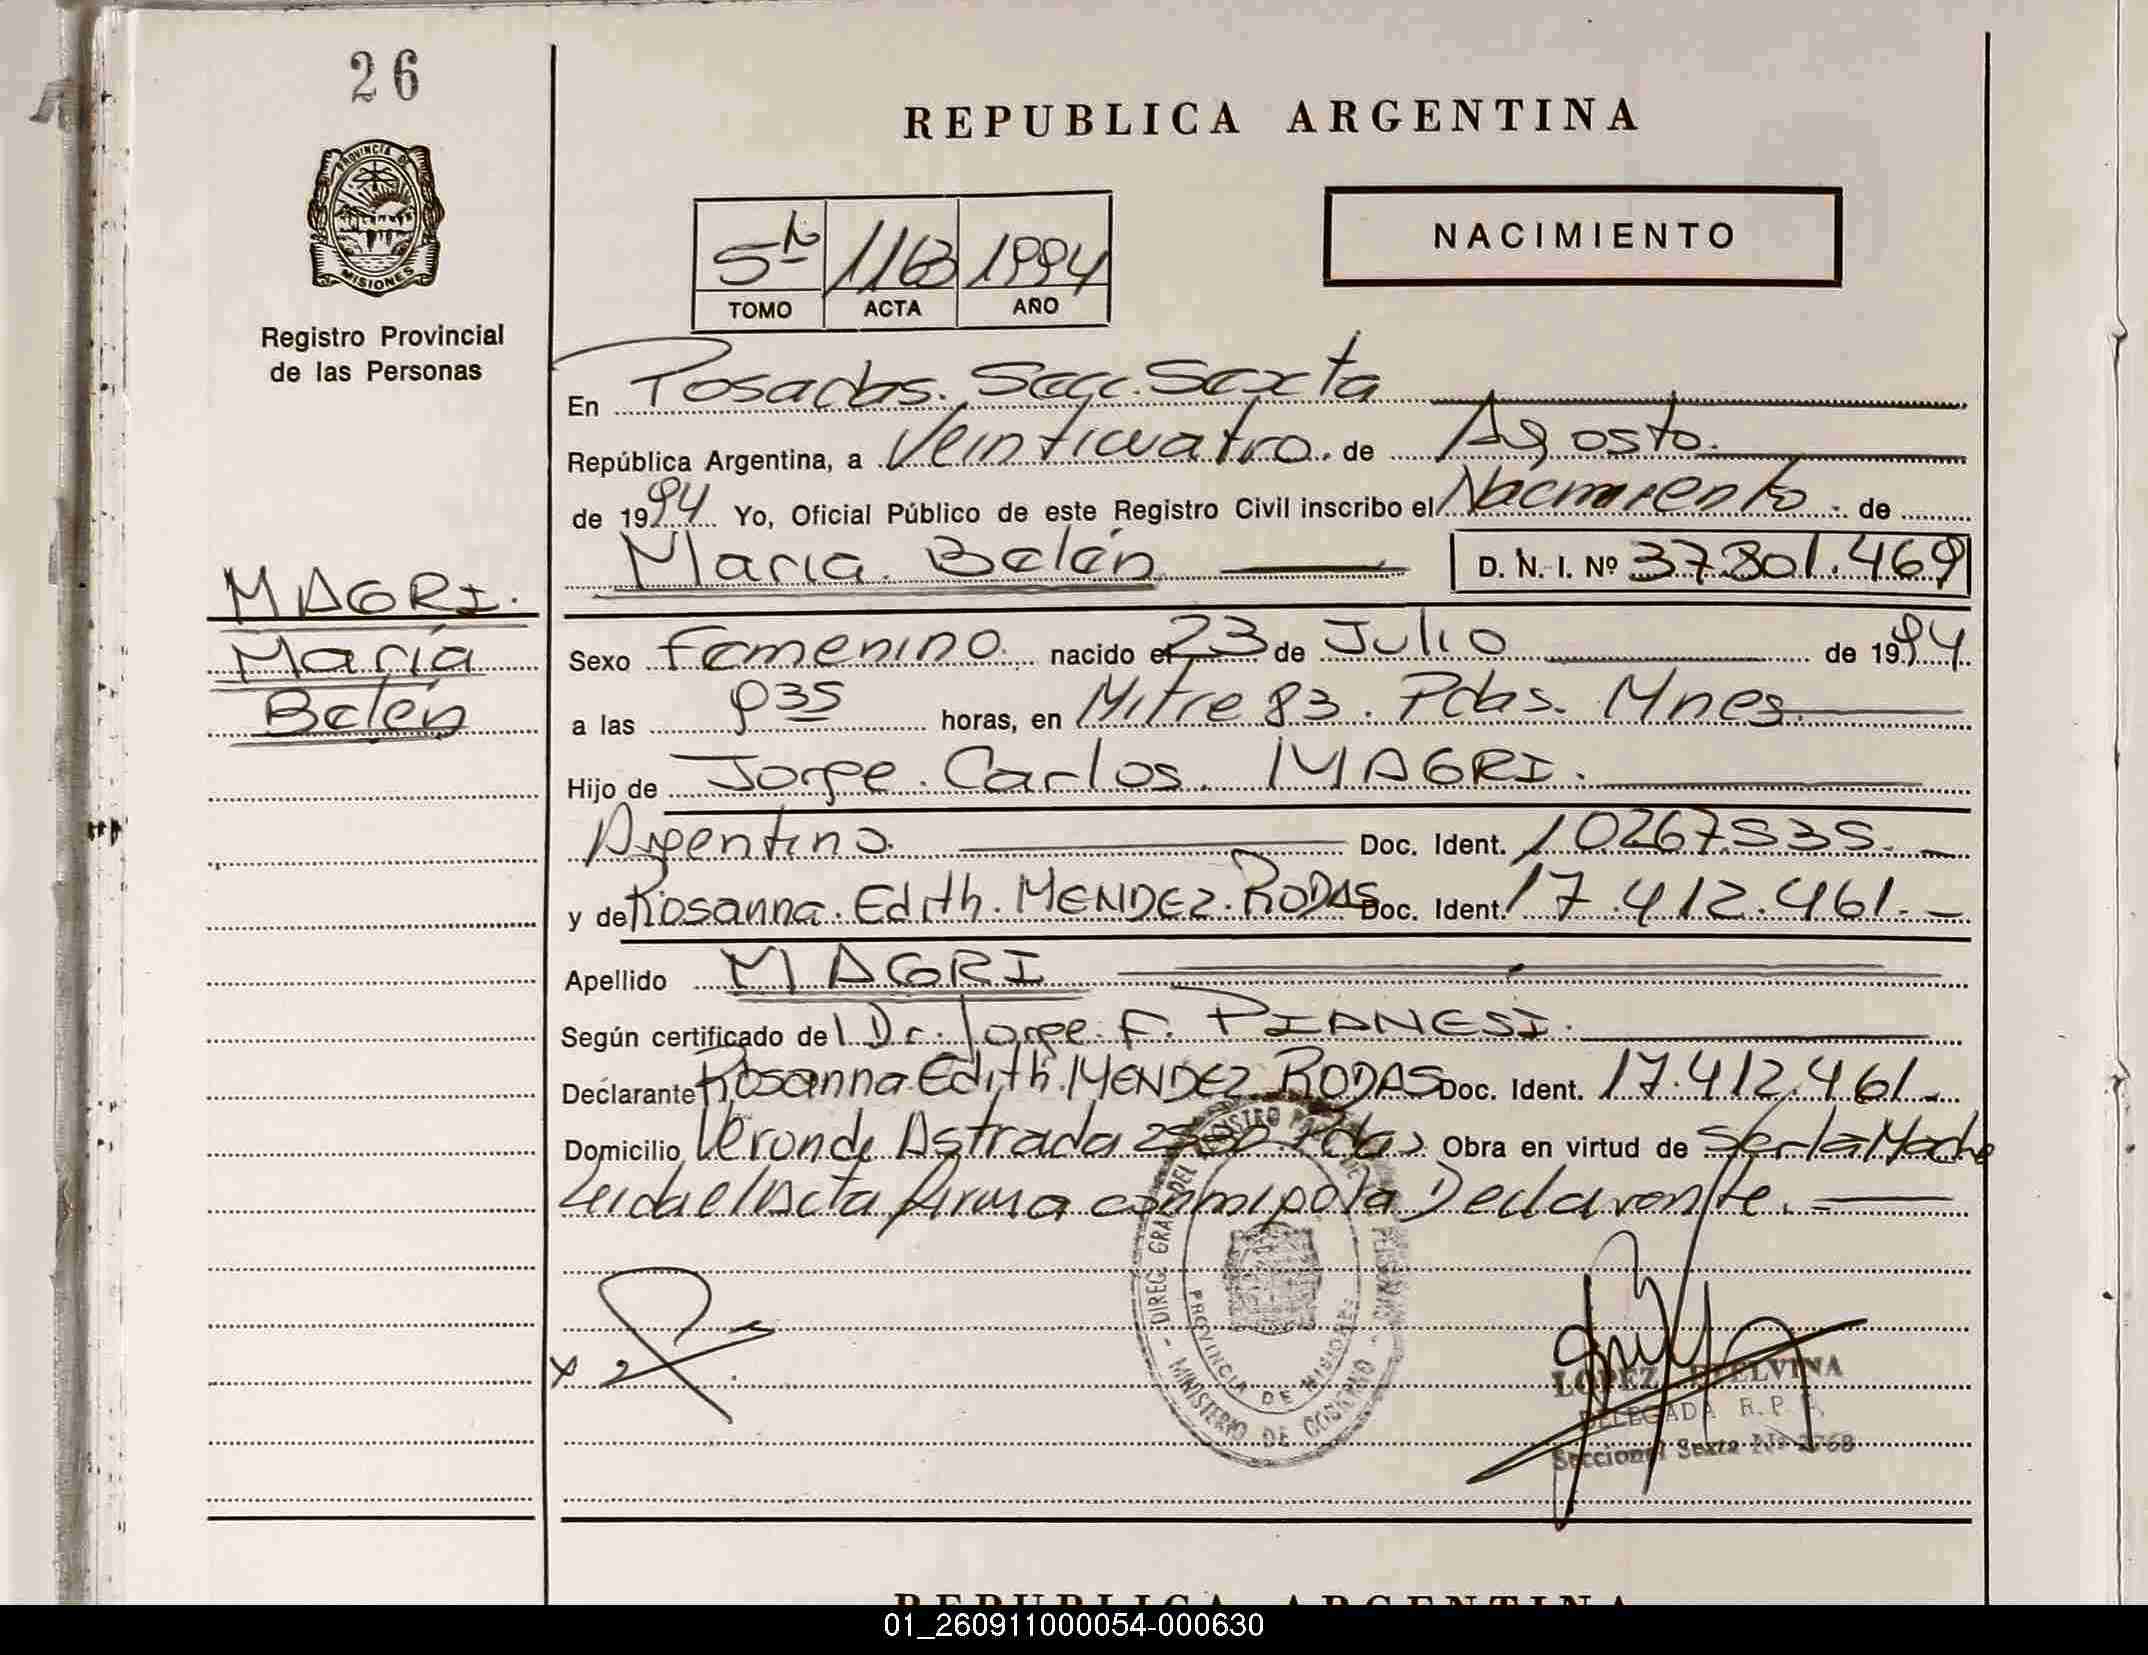 26
REPUBLICA ARGENTINA
PROVINCIA DE
MISIONES
NACIMIENTO
5to 1163 1994
TOMO ACTA AÑO
Registro Provincial
de las Personas
En Posadas. Secc. Sexta
República Argentina, a Veinticuatro. de Agosto.
de 1994 Yo, Oficial Público de este Registro Civil inscribo el Nacimiento. de
María. Belén D. N. I. Nº 37.801.469
MAGRI.
María
Belén
Sexo Femenino. nacido el 23 de Julio de 1994
a las 9 35 horas, en Mitre 83. Pdas. Mnes.
Hijo de Jorge. Carlos. MAGRI.
Argentino. Doc. Ident. 10267535.
y de Rosanna. Edith. MENDEZ. RODAS Doc. Ident. 17.412.461.-
Apellido MAGRI
Según certificado del Dr. Jorge. F. PIANESI.
Declarante Rosanna. Edith. MENDEZ RODAS Doc. Ident. 17.412.461.-
Domicilio Astrada Pdas Obra en virtud de Ser la Madre
Leida el Acta firma conmigo la Declarante.
DIREC. GRAL. DEL REGISTRO PROV. DE LAS PERSONAS
PROVINCIA DE MISIONES
- MINISTERIO DE GOBIERNO -
LOPEZ ETELVINA
DELEGADA R. P. P.
Seccional Sexta Nº 2768
REPUBLICA ARGENTINA
01_260911000054-000630